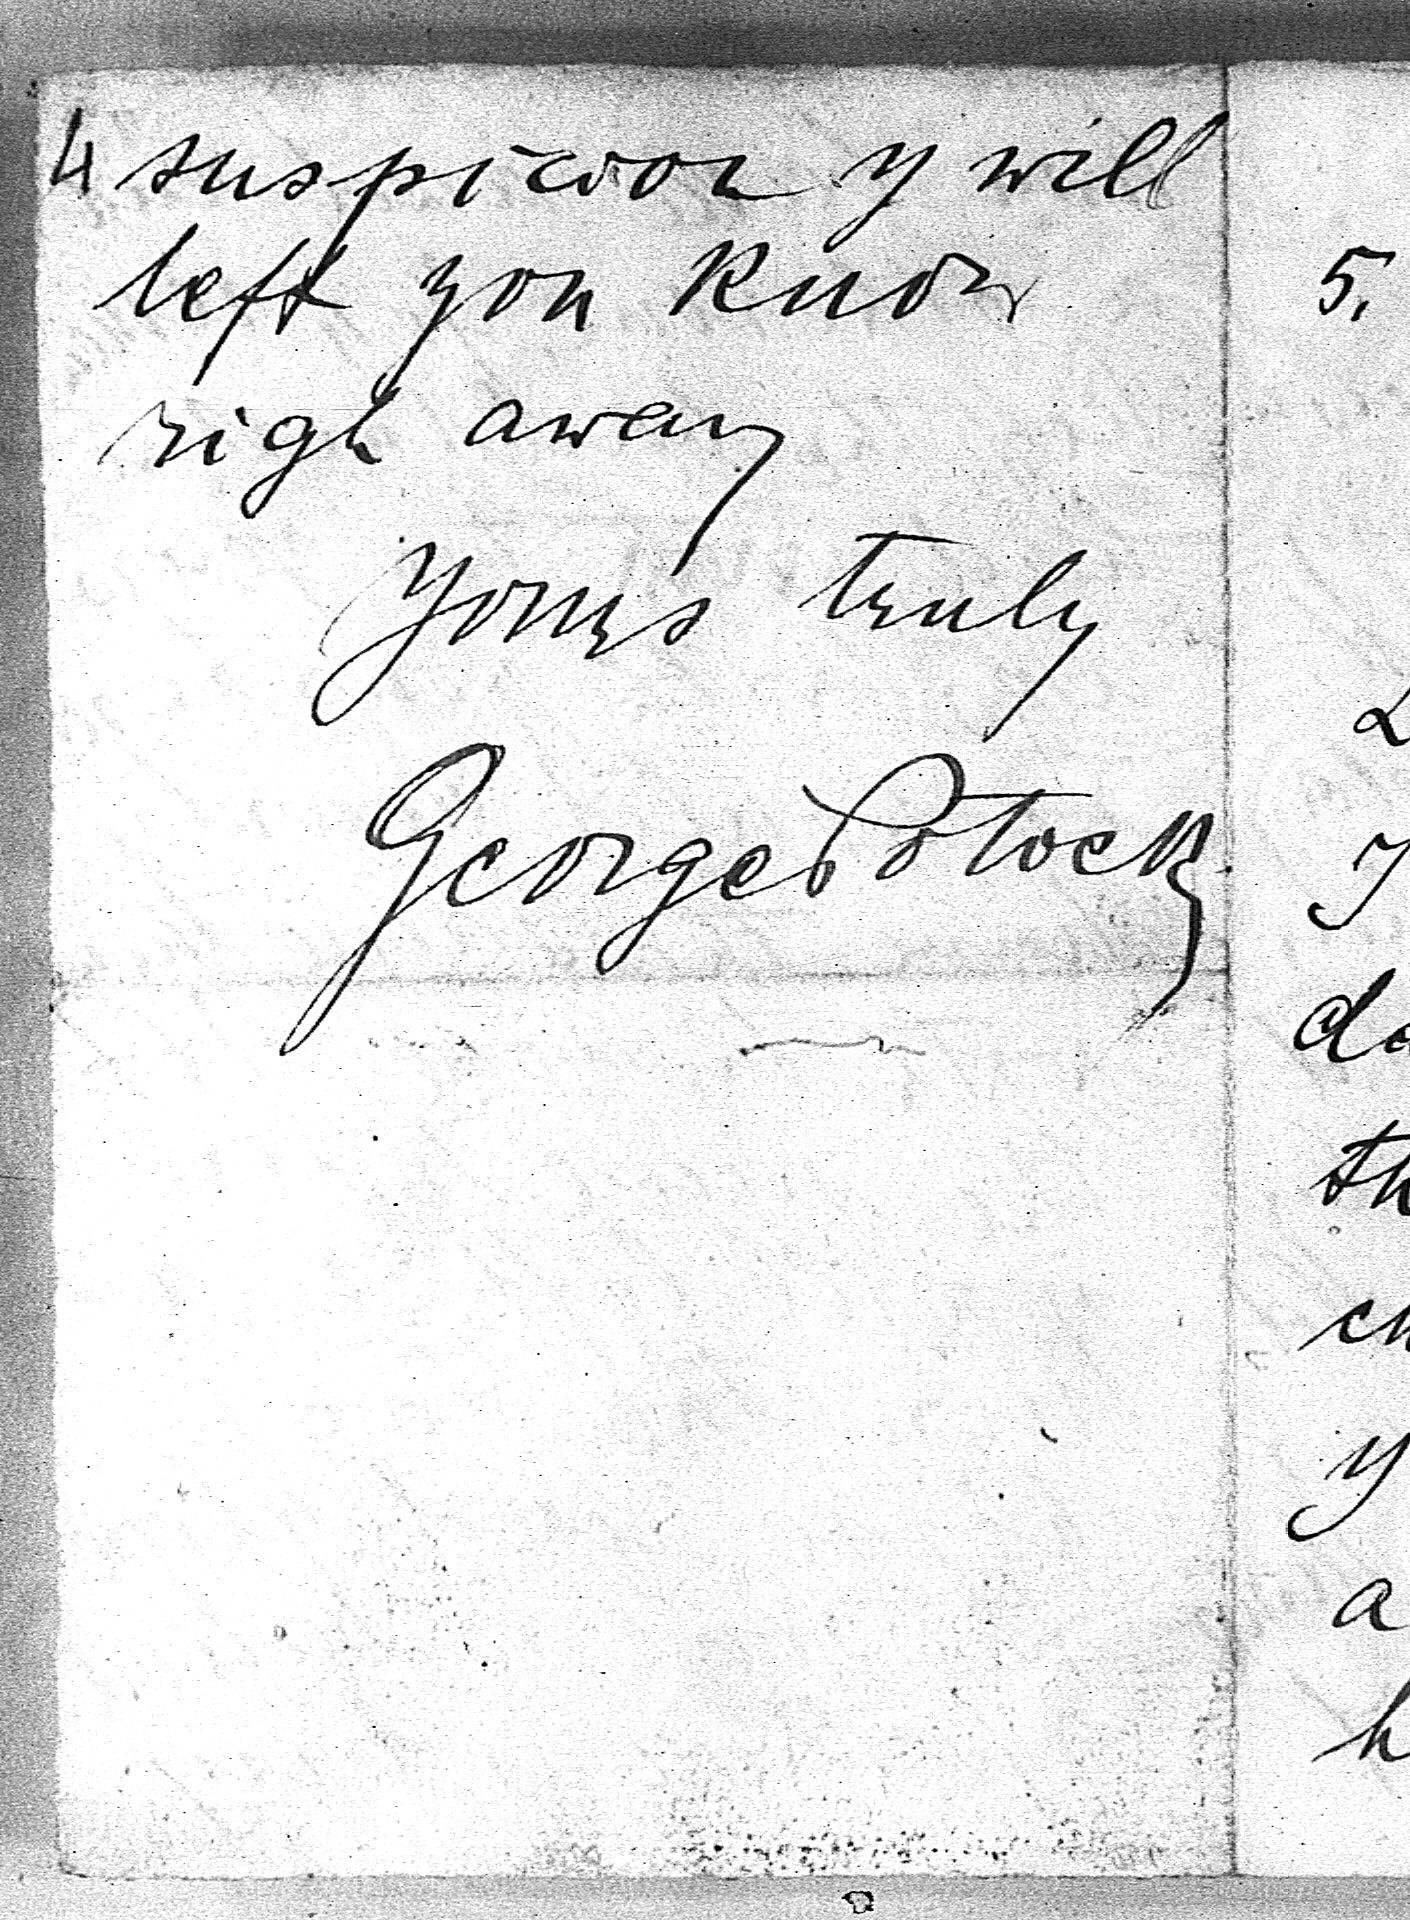 4 suspicion y will
left you know
righ away
Yours truly
George Potock
5.